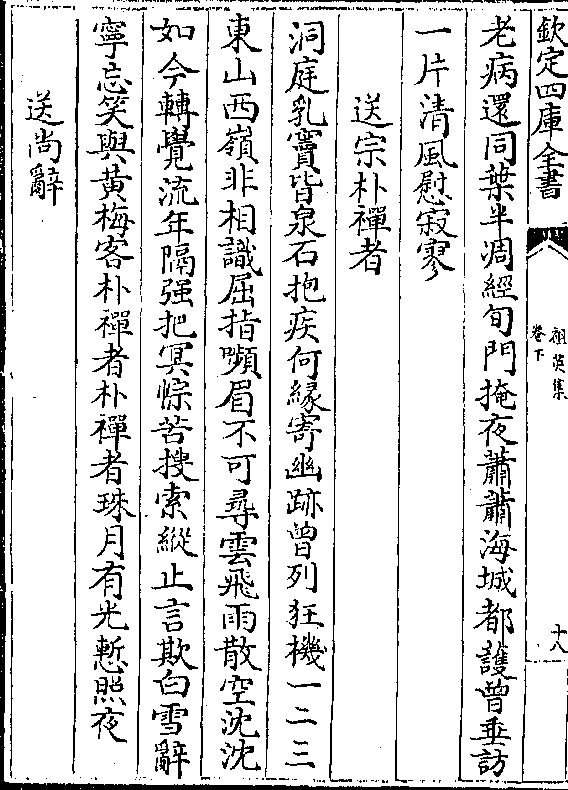 欽定四庫全書
祖英集
卷下
十八
老病還同葉半凋經旬門掩夜蕭蕭海城都護曾垂訪
一片清風慰寂寥
送宗朴禪者
洞庭乳竇皆泉石抱疾何緣寄幽跡曾列狂機一二三
東山西嶺非相識屈指嚬眉不可尋雲飛雨散空沈沈
如今轉覺流年隔强把冥悰苦搜索縱止言欺白雪辭
寧忘笑與黄梅客朴禪者朴禪者珠月有光慙照夜
送尚辭